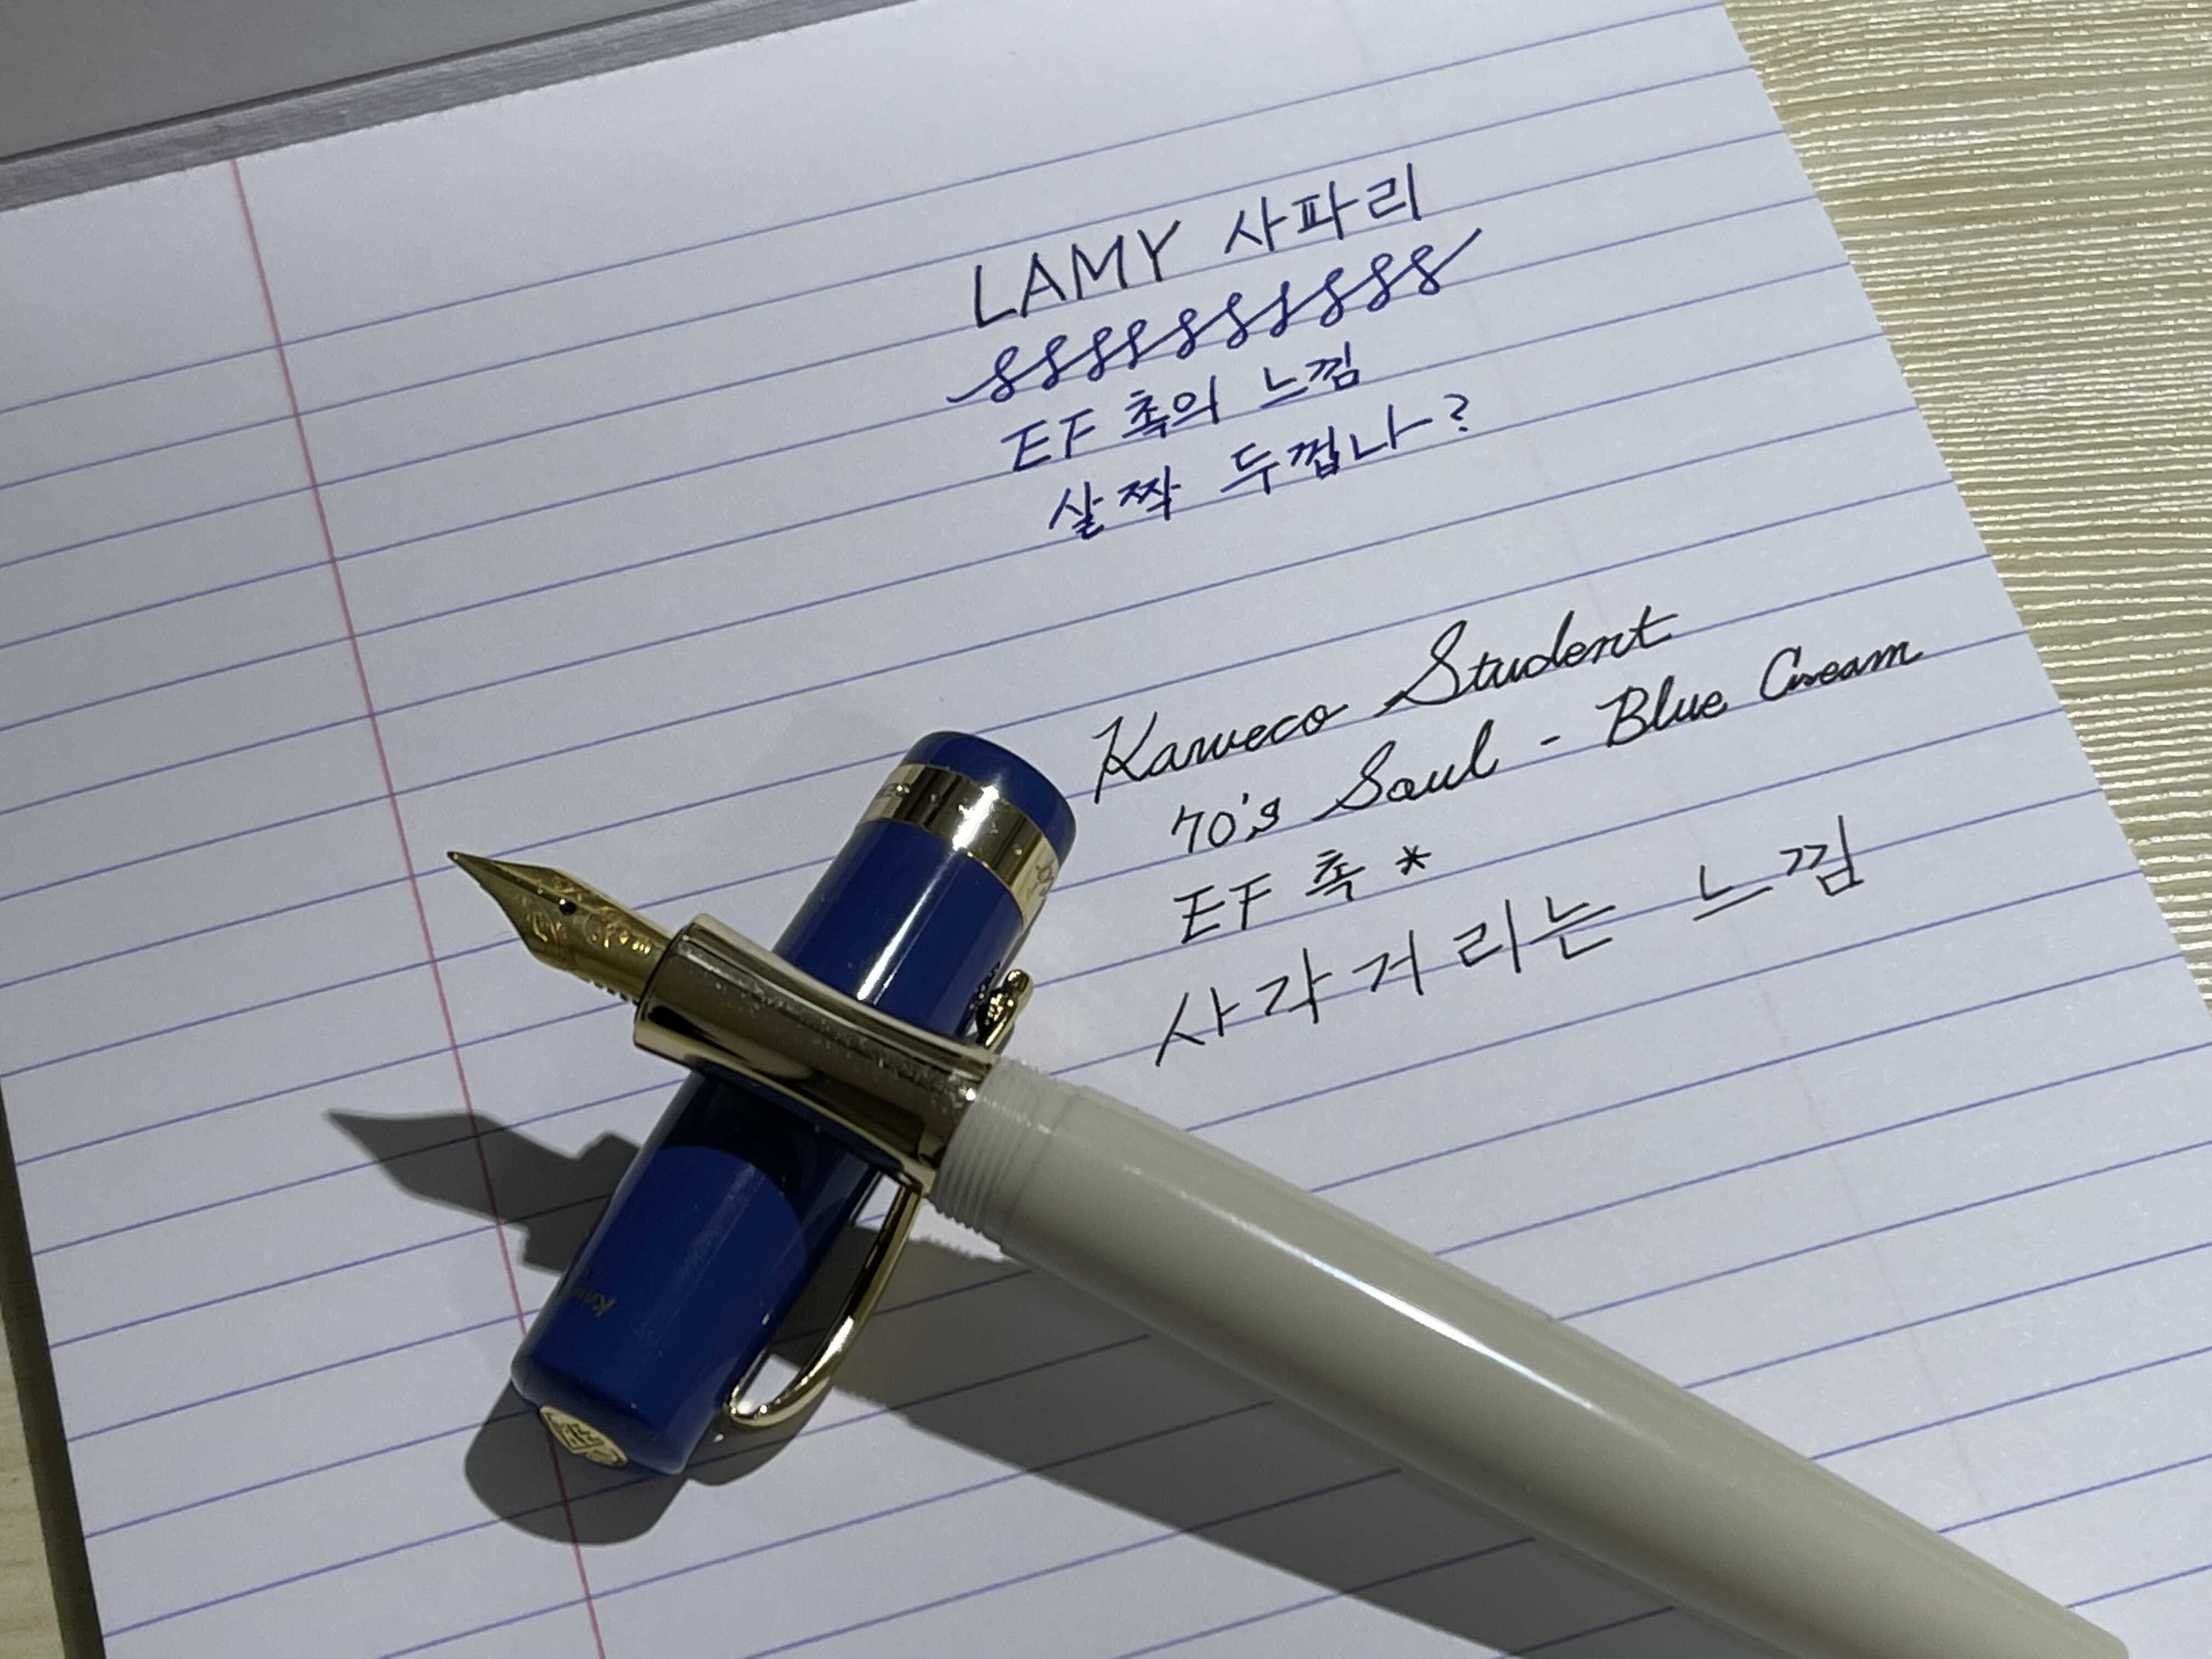 LAMY 사파리
EF 촉의 느낌
살짝 두껍나?
Kaweco Student
70's Soul - Blue Cream
EF 촉 *
사각거리는 느낌